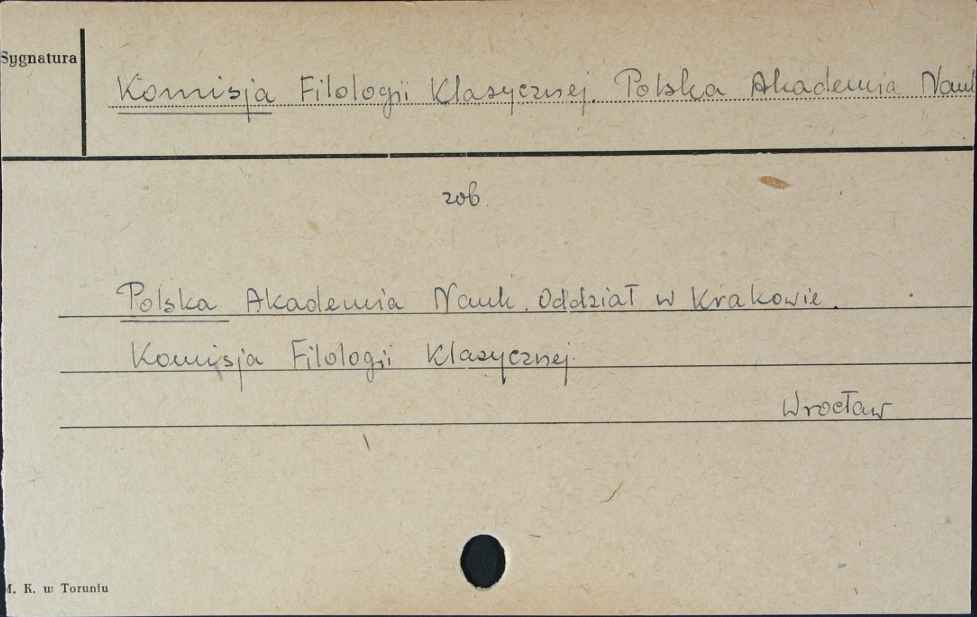 Sygnatura
Komisja Filologii Klasycznej. Polska Akademia Nauk
zob.
Polska Akademia Nauk. Oddział w Krakowie.
Komisja Filologii Klasycznej.
Wrocław
M. K. w Toruniu